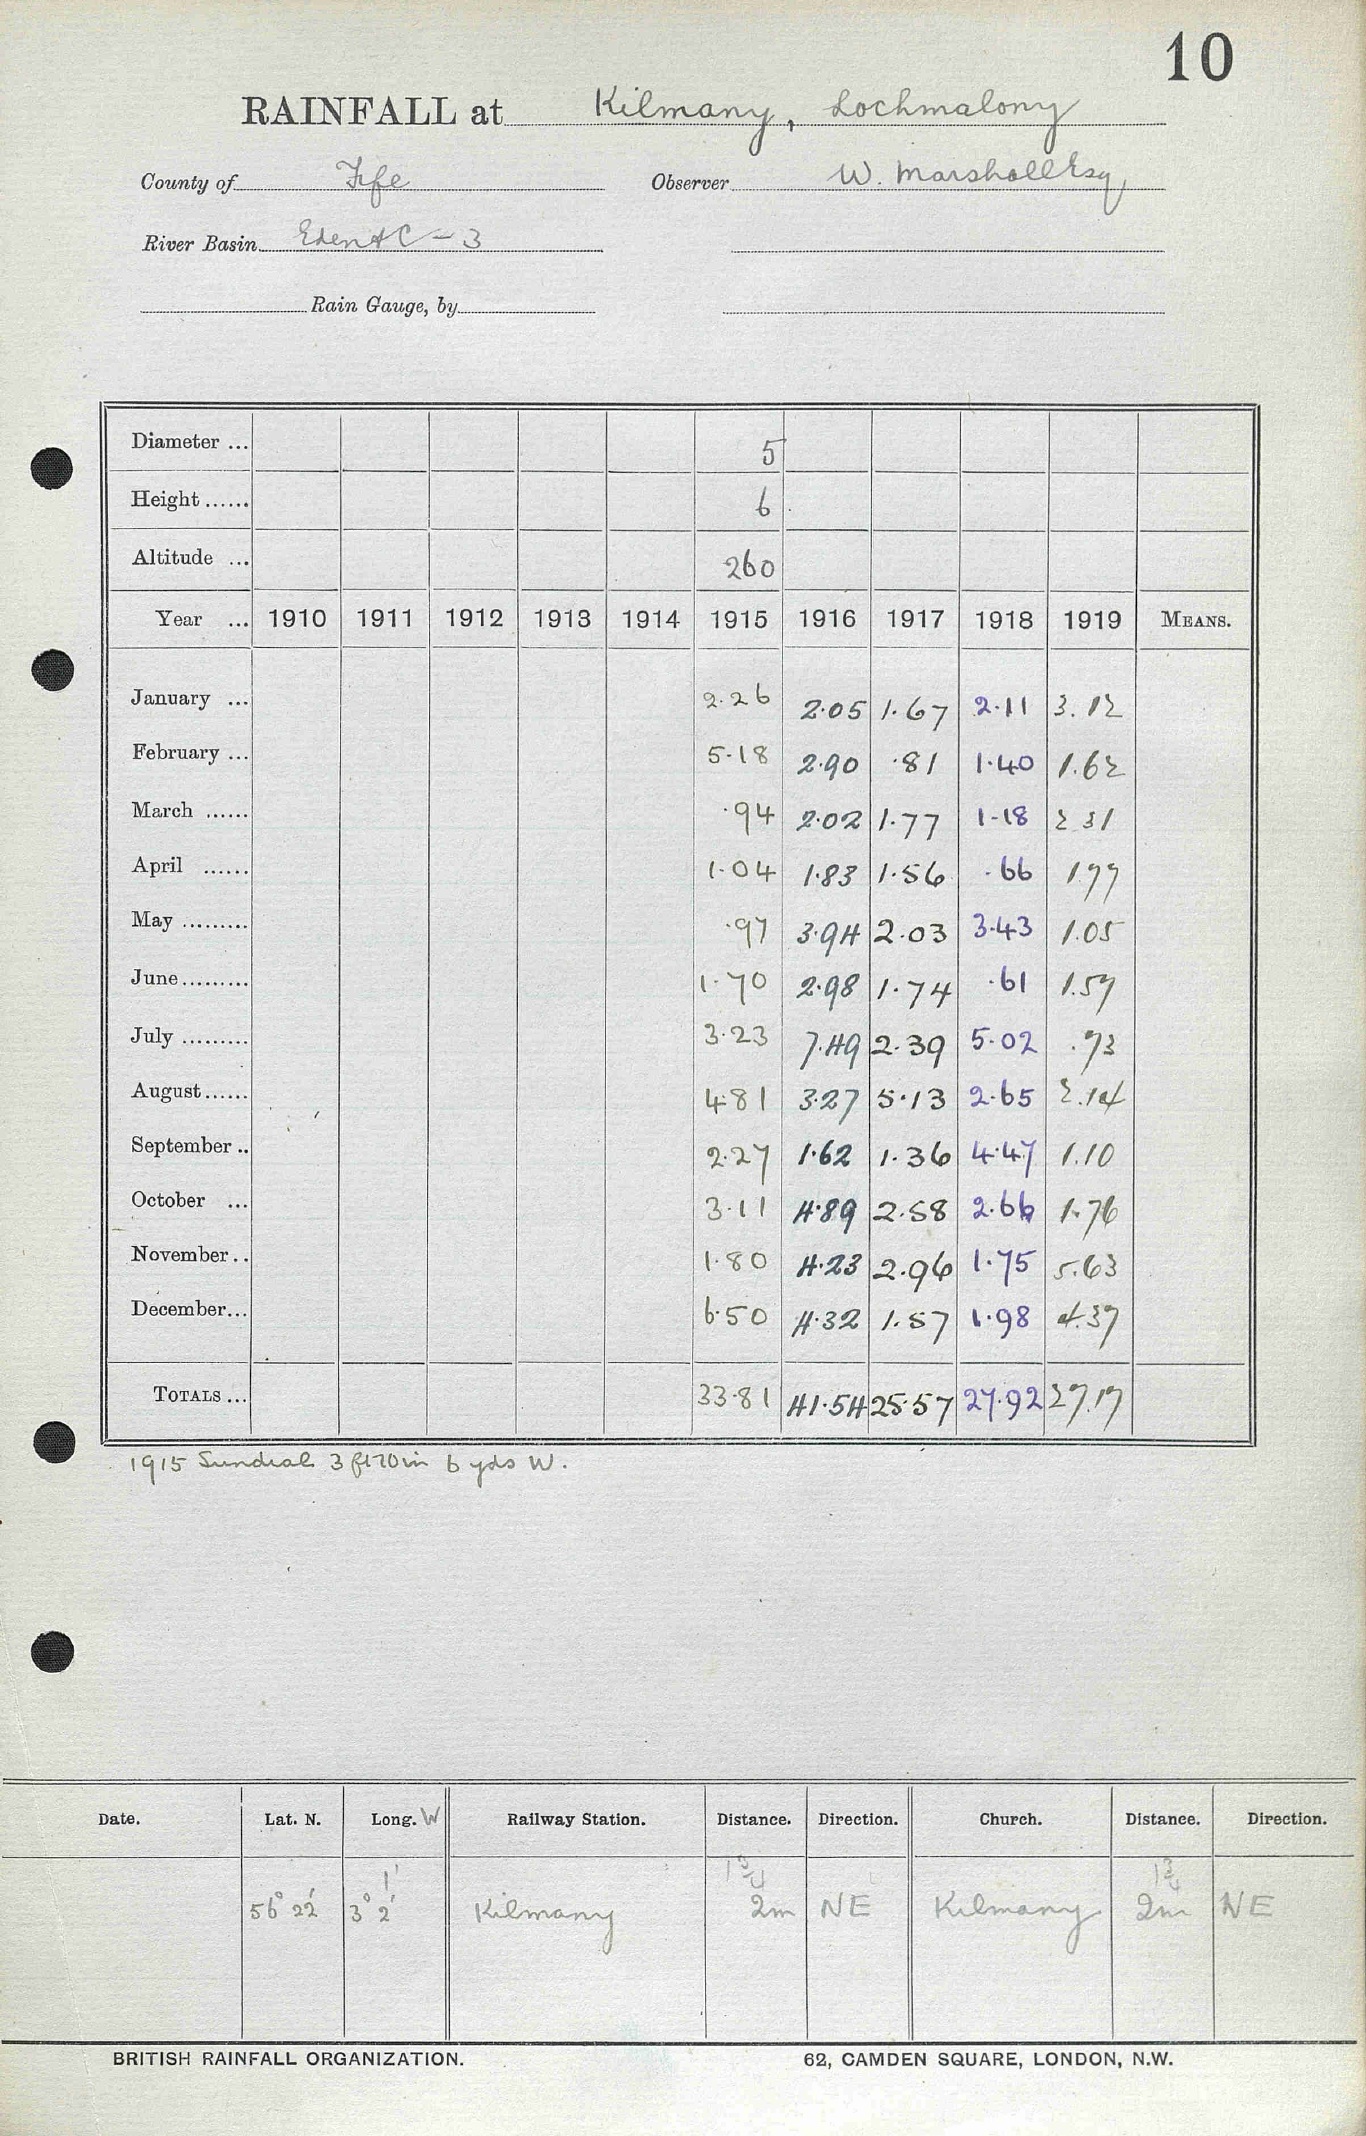 10
RAINFALL at Kilmany, Lochmalony
County of Fife Observer W. Marshall Esq,
River Basin Eden &C - 3
Rain Gauge, by
Diameter ... 5
Height ...... 6
Altitude ... 260
Year ... 1910 1911 1912 1913 1914 1915 1916 1917 1918 1919 MEANS.
January ... 2.26 2.05 1.67 2.11 3.12
February ... 5.18 2.90 .81 1.40 1.62
March ...... .94 2.02 1.77 1.18 2 31
April ...... 1.04 1.83 1.56 .66 1.77
May ......... .97 3.94 2.03 3.43 1.05
June ......... 1.70 2.98 1.74 .61 1.57
July ......... 3.23 7.49 2.39 5.02 .73
August ...... 4.81 3.27 5.13 2.65 2.14
September .. 2.27 1.62 1.36 4.47 1.10
October ... 3.11 4.89 2.58 2.66 1.76
November .. 1.80 4.23 2.96 1.75 5.63
December ... 6.50 4.32 1.57 1.98 4.37
TOTALS ... 33.81 41.54 25.57 27.92 27.17
1915 Sundial 3 ft 10 in 6 yds W.
Date. Lat. N. Long. W Railway Station. Distance. Direction. Church. Distance. Direction.
1' 1¾ 1¾
56° 22' 3° 2' Kilmany 2m NE Kilmany 2m NE
BRITISH RAINFALL ORGANIZATION. 62, CAMDEN SQUARE, LONDON, N.W.